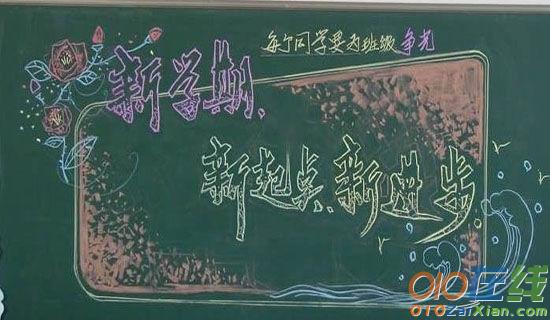 每个同学要为班级争光
新学期、
新起点、新进步
010在线
010ZaiXian.com